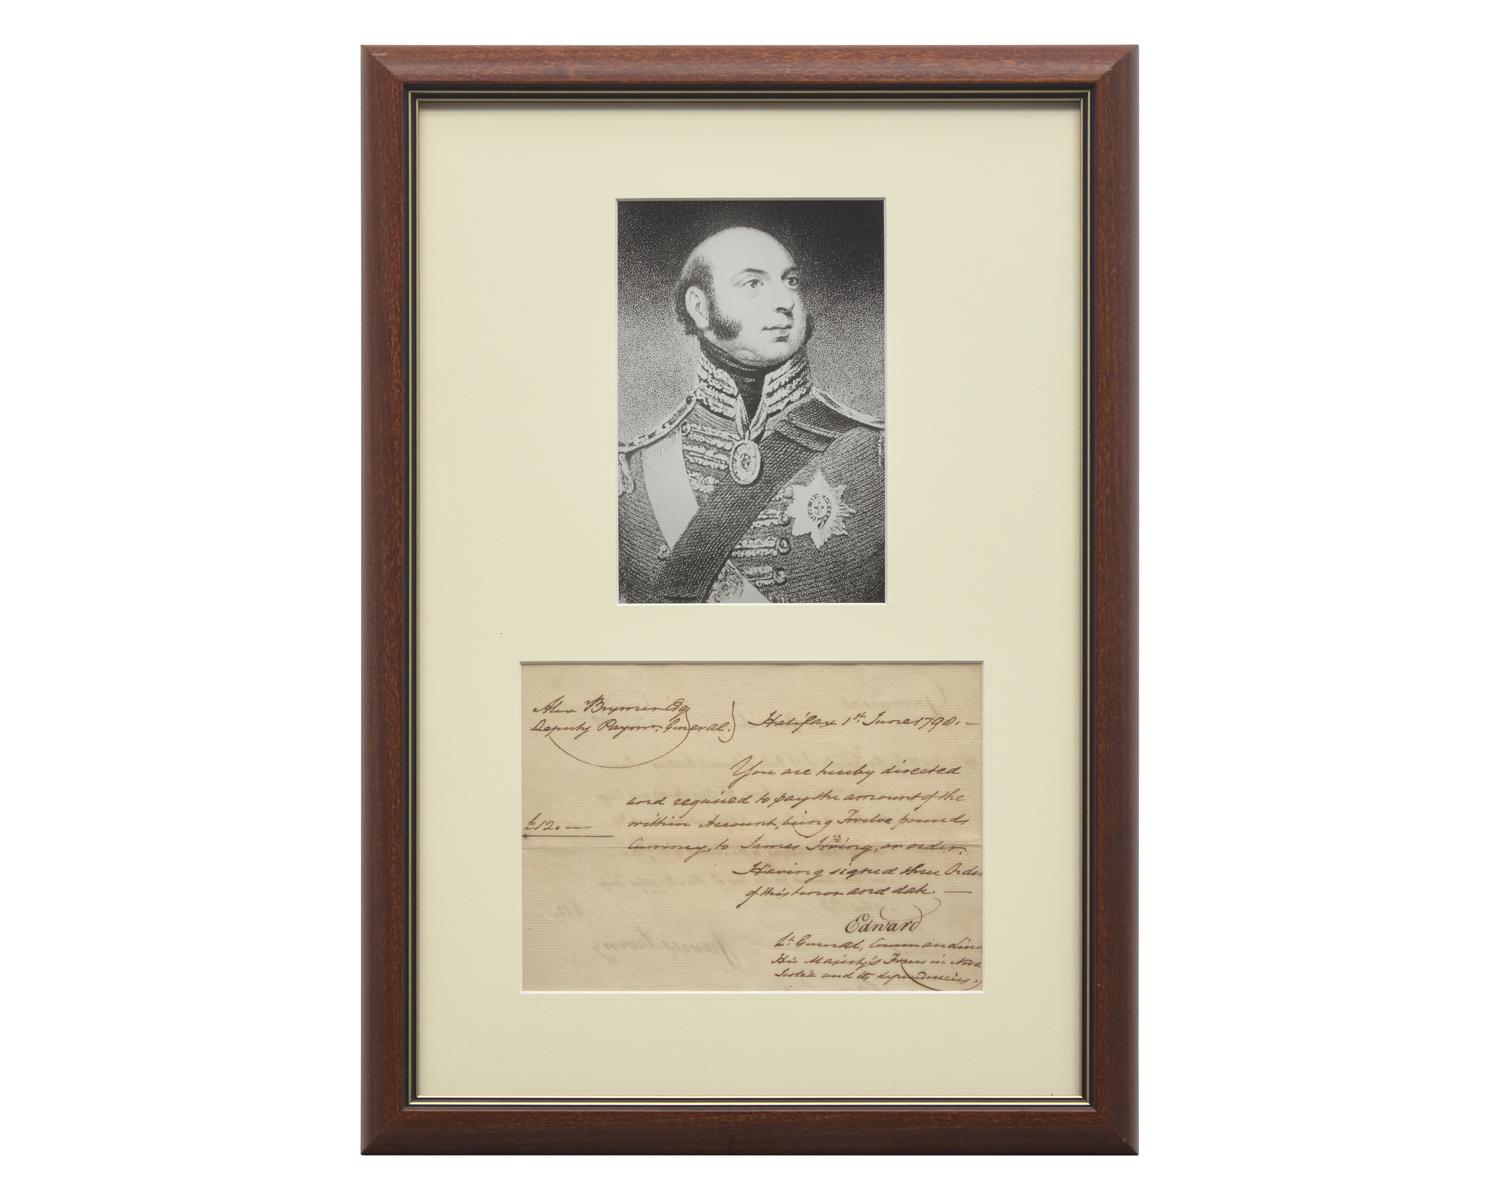 Alex Brymer Esq
Deputy Paymr. General.) Halifax 1st June 1798. —
You are hereby directed
and required to pay the amount of the
within Account, being Twelve pounds
£12.
Currency, to James Irving, or order.
Having signed three Orders
of this tenor and date. —
Edward
Lt. General, Commanding
His Majesty's Forces in Nova
Scotia and its dependencies.